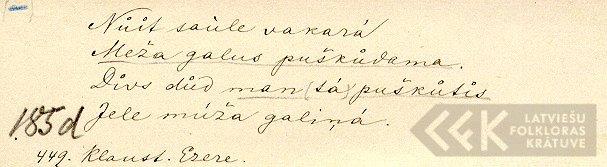 Nůit saùle vakará
Meža galus puškůdama.
Divs důd man (tá) puškůtis
Jele múža galiņá.
185d
449. Klaust. Ezere.
LATVIEŠU
FOLKLORAS
KRĀTUVE